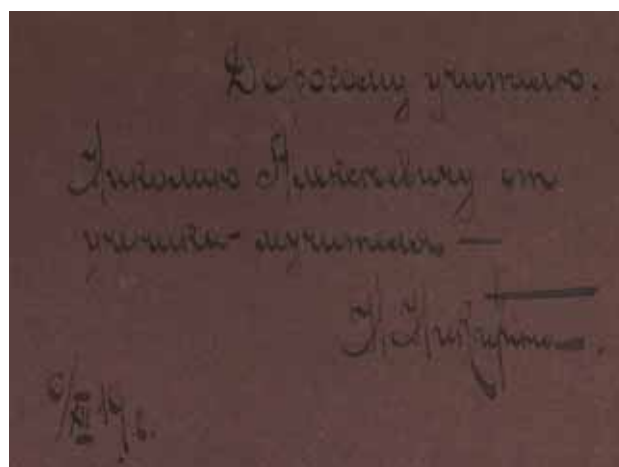 Дорогому учителю.
Николаю Алексеевичу от
ученика-мучителя —
Н.
6/XII